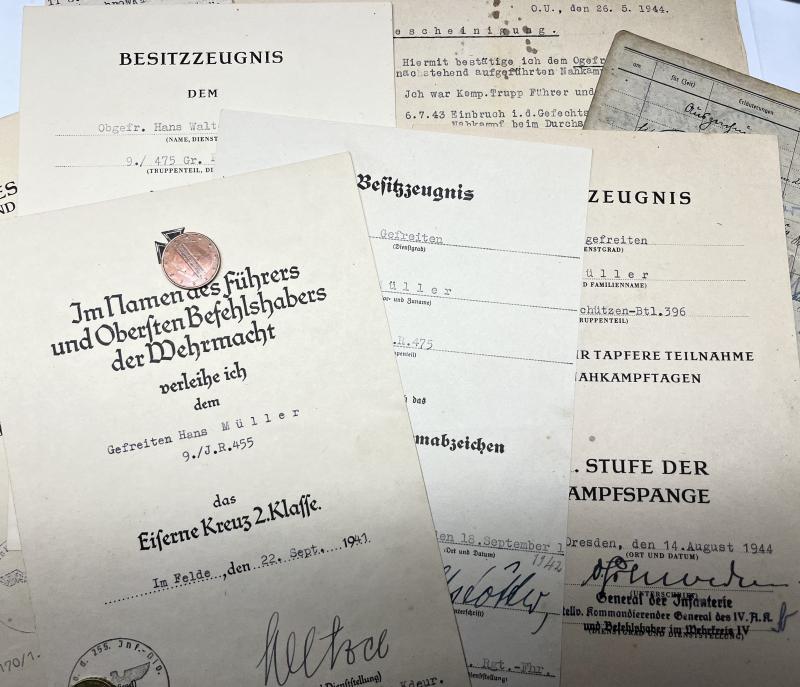 BESITZZEUGNIS
DEM
Obgefr. Hans Walt
(NAME, DIENST
9./ 475 Gr.
(TRUPPENTEIL, DI
O.U., den 26. 5. 1944.
escheinigung.
Hiermit bestätige ich dem Ogefr
nachstehend aufgeführten Nahkamp
Jch war Komp.Trupp Führer und
6.7.43 Einbruch i.d.Gefechts
Nahkampf beim Durchs
am
für (Zeit)
Erläuterungen
Im Namen des Führers
und Obersten Befehlshabers
der Wehrmacht
verleihe ich
dem
Gefreiten Hans Müller
9./J.R.455
das
Eiserne Kreuz 2.Klasse.
Im Felde, den 22. Sept. 1941.
Dienststellung)
Kdeur.
Besitzzeugnis
Gefreiten
(Dienstgrad)
üller
or- und Zuname)
.R.475
das
mabzeichen
den 18.September 1
1942
(Ort und Datum)
erschrift)
Rgt.-Fhr.
ZEUGNIS
gefreiten
ENSTGRAD)
üller
D FAMILIENNAME)
chützen-Btl.396
RUPPENTEIL)
ÜR TAPFERE TEILNAHME
NAHKAMPFTAGEN
. STUFE DER
AMPFSPANGE
Dresden, den 14.August 1944
(ORT UND DATUM)
(UNTERSCHRIFT)
General der Infanterie
tellv. Kommandierender General des IV. A. K.
und Befehlshaber im Wehrkreis IV
(DIENSTGRAD UND DIENSTSTELLUNG)
170/1.